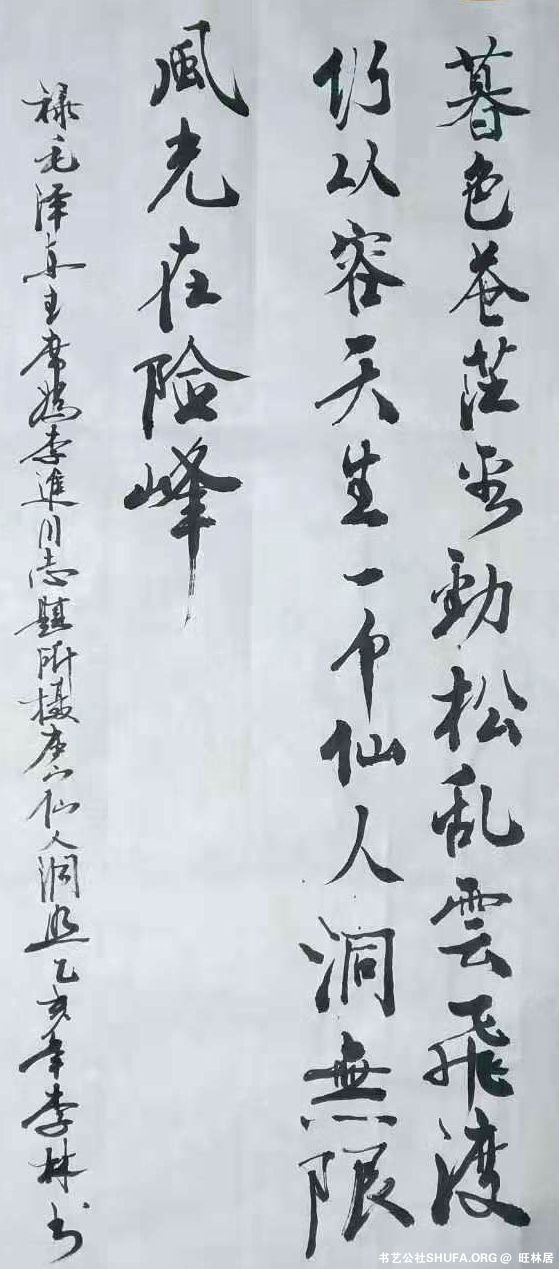 暮色苍茫看劲松乱雲飛渡
仍从容天生一个仙人洞無限
風光在险峰
禄毛泽东主席為李進同志题所摄庐山仙人洞照乙亥年李林书
书艺公社SHUFA.ORG @ 旺林居